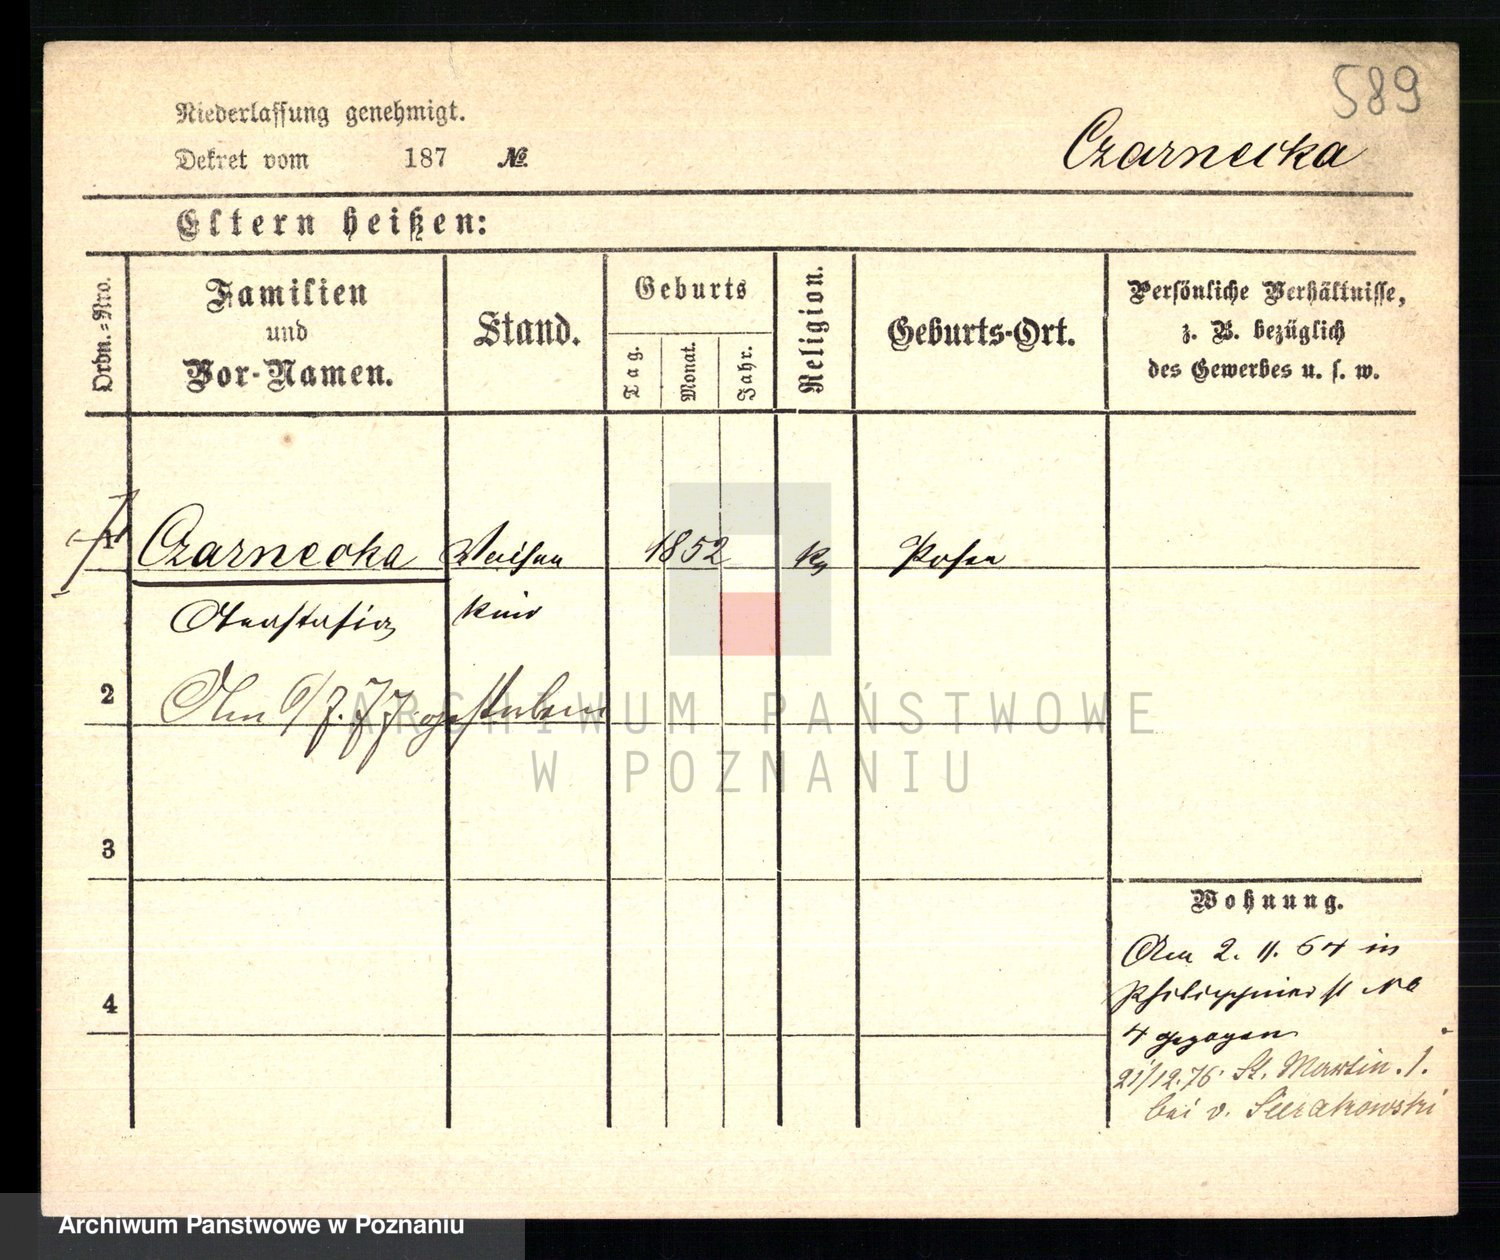 589
Niederlassung genehmigt.
Czarnecka
Dekret vom 187 №.
Eltern heißen:
Ordn.=Nro.
Familien und Vor-Namen.
Stand.
Geburts
Tag.
Monat.
Jahr.
Religion.
Geburts-Ort.
Persönliche Verhältnisse,
z. B. bezüglich
des Gewerbes u. s. w.
1 Czarnecka Waisen 1852 k Posen
Anastasia kind
2 Am 6/7. 77 gestorben
3
4
Wohnung.
Am 2. 11. 64 in
Philippinerst No
4 gezogen
21/12.76. St. Martin. 1.
bei v. Sierakowski
ARCHIWUM PAŃSTWOWE
W POZNANIU
Archiwum Państwowe w Poznaniu